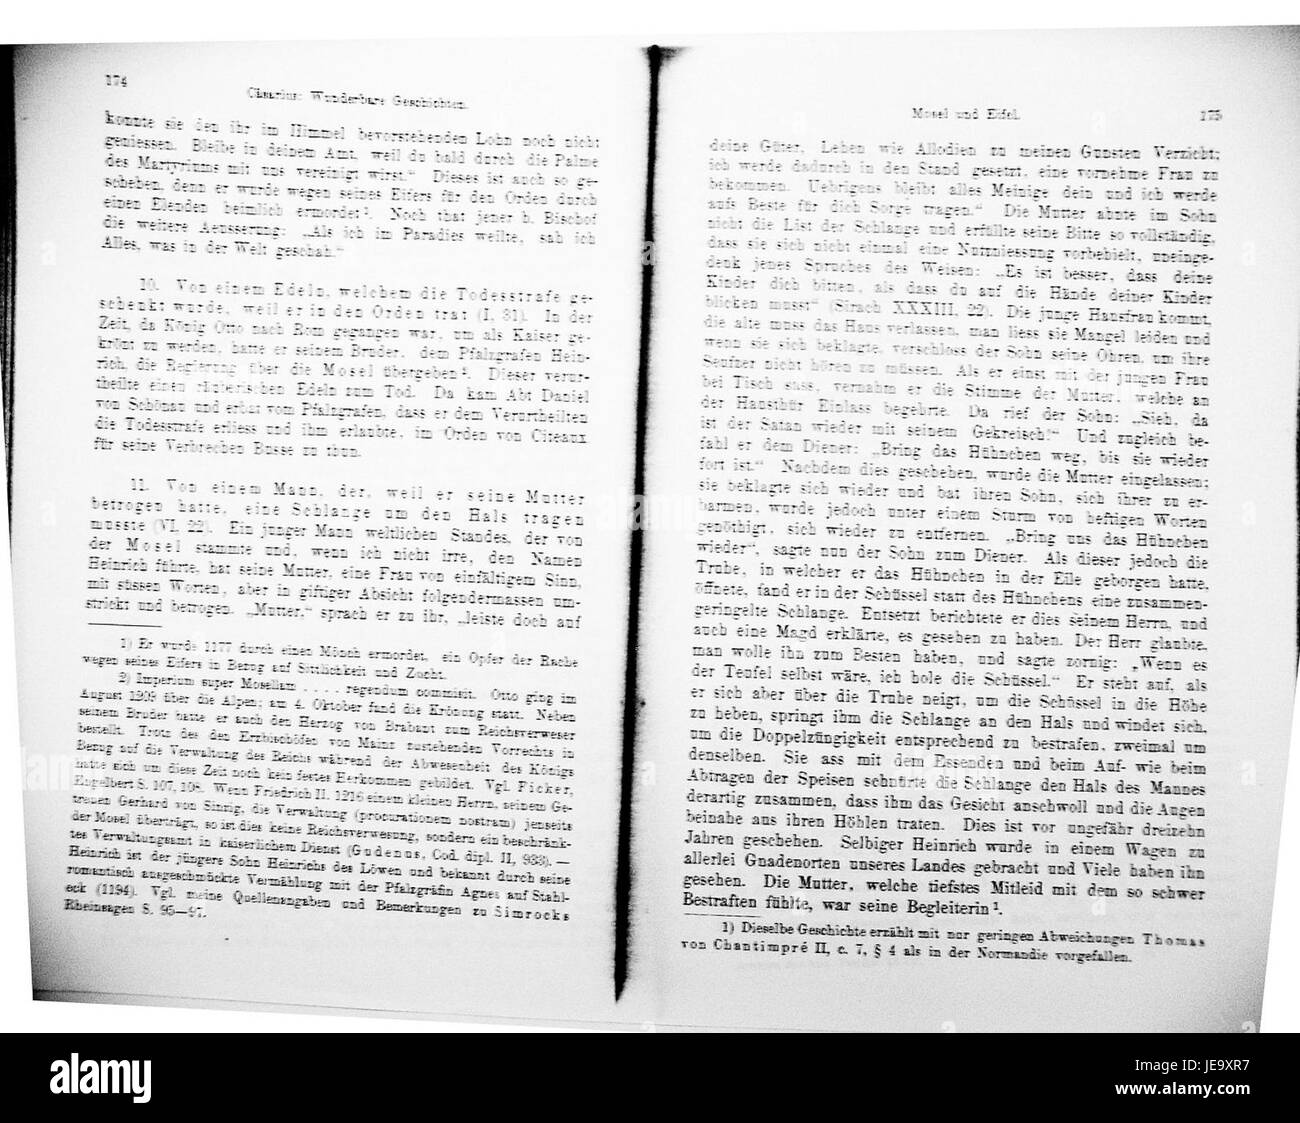 174
Cäsarius: Wunderbare Geschichten.
konnte sie den ihr im Himmel bevorstehenden Lohn noch nicht
geniessen. Bleibe in deinem Amt, weil du bald durch die Palme
des Martyriums mit uns vereinigt wirst.“ Dieses ist auch so ge-
schehen, denn er wurde wegen seines Eifers für den Orden durch
einen Elenden heimlich ermordet¹. Noch that jener h. Bischof
die weitere Aeusserung: „Als ich im Paradies weilte, sah ich
Alles, was in der Welt geschah.“
10. Von einem Edeln, welchem die Todesstrafe ge-
schenkt wurde, weil er in den Orden trat (I, 31). In der
Zeit, da König Otto nach Rom gegangen war, um als Kaiser ge-
krönt zu werden, hatte er seinem Bruder, dem Pfalzgrafen Hein-
rich, die Regierung über die Mosel übergeben². Dieser verur-
theilte einen räuberischen Edeln zum Tod. Da kam Abt Daniel
von Schönau und erbat vom Pfalzgrafen, dass er dem Verurtheilten
die Todesstrafe erliess und ihm erlaubte, im Orden von Citeaux
für seine Verbrechen Busse zu thun.
11. Von einem Mann, der, weil er seine Mutter
betrogen hatte, eine Schlange um den Hals tragen
musste (VI, 22). Ein junger Mann weltlichen Standes, der von
der Mosel stammte und, wenn ich nicht irre, den Namen
Heinrich führte, hat seine Mutter, eine Frau von einfältigem Sinn,
mit süssen Worten, aber in giftiger Absicht folgendermassen um-
strickt und betrogen. „Mutter,“ sprach er zu ihr, „leiste doch auf
1) Er wurde 1177 durch einen Mönch ermordet, ein Opfer der Rache
wegen seines Eifers in Bezug auf Sittlichkeit und Zucht.
2) Imperium super Mosellam . . . . regendum commisit. Otto ging im
August 1209 über die Alpen; am 4. Oktober fand die Krönung statt. Neben
seinem Bruder hatte er auch den Herzog von Brabant zum Reichsverweser
bestellt. Trotz des den Erzbischöfen von Mainz zustehenden Vorrechts in
Bezug auf die Verwaltung des Reichs während der Abwesenheit des Königs
hatte sich um diese Zeit noch kein festes Herkommen gebildet. Vgl. Ficker,
Engelbert S. 107, 108. Wenn Friedrich II. 1216 einem kleinen Herrn, seinem Ge-
treuen Gerhard von Sinzig, die Verwaltung (procurationem nostram) jenseits
der Mosel überträgt, so ist dies keine Reichsverwesung, sondern ein beschränk-
tes Verwaltungsamt in kaiserlichem Dienst (Gudenus, Cod. dipl. II, 933). —
Heinrich ist der jüngere Sohn Heinrichs des Löwen und bekannt durch seine
romantisch ausgeschmückte Vermählung mit der Pfalzgräfin Agnes auf Stahl-
eck (1194). Vgl. meine Quellenangaben und Bemerkungen zu Simrocks
Rheinsagen S. 95—97.
Mosel und Eifel.
175
deine Güter, Lehen wie Allodien zu meinen Gunsten Verzicht;
ich werde dadurch in den Stand gesetzt, eine vornehme Frau zu
bekommen. Uebrigens bleibt alles Meinige dein und ich werde
aufs Beste für dich Sorge tragen.“ Die Mutter ahnte im Sohn
nicht die List der Schlange und erfüllte seine Bitte so vollständig,
dass sie sich nicht einmal eine Nutzniessung vorbehielt, uneinge-
denk jenes Spruches des Weisen: „Es ist besser, dass deine
Kinder dich bitten, als dass du auf die Hände deiner Kinder
blicken musst“ (Sirach XXXIII, 22). Die junge Hausfrau kommt,
die alte muss das Haus verlassen, man liess sie Mangel leiden und
wenn sie sich beklagte, verschloss der Sohn seine Ohren, um ihre
Seufzer nicht hören zu müssen. Als er einst mit der jungen Frau
bei Tisch sass, vernahm er die Stimme der Mutter, welche an
der Hausthür Einlass begehrte. Da rief der Sohn: „Sieh, da
ist der Satan wieder mit seinem Gekreisch!“ Und zugleich be-
fahl er dem Diener: „Bring das Hühnchen weg, bis sie wieder
fort ist.“ Nachdem dies geschehen, wurde die Mutter eingelassen;
sie beklagte sich wieder und bat ihren Sohn, sich ihrer zu er-
barmen, wurde jedoch unter einem Sturm von heftigen Worten
genöthigt, sich wieder zu entfernen. „Bring uns das Hühnchen
wieder“, sagte nun der Sohn zum Diener. Als dieser jedoch die
Truhe, in welcher er das Hühnchen in der Eile geborgen hatte,
öffnete, fand er in der Schüssel statt des Hühnchens eine zusammen-
geringelte Schlange. Entsetzt berichtete er dies seinem Herrn, und
auch eine Magd erklärte, es gesehen zu haben. Der Herr glaubte,
man wolle ihn zum Besten haben, und sagte zornig: „Wenn es
der Teufel selbst wäre, ich hole die Schüssel.“ Er steht auf, als
er sich aber über die Truhe neigt, um die Schüssel in die Höhe
zu heben, springt ihm die Schlange an den Hals und windet sich,
um die Doppelzüngigkeit entsprechend zu bestrafen, zweimal um
denselben. Sie ass mit dem Essenden und beim Auf- wie beim
Abtragen der Speisen schnürte die Schlange den Hals des Mannes
derartig zusammen, dass ihm das Gesicht anschwoll und die Augen
beinahe aus ihren Höhlen traten. Dies ist vor ungefähr dreizehn
Jahren geschehen. Selbiger Heinrich wurde in einem Wagen zu
allerlei Gnadenorten unseres Landes gebracht und Viele haben ihn
gesehen. Die Mutter, welche tiefstes Mitleid mit dem so schwer
Bestraften fühlte, war seine Begleiterin¹.
1) Dieselbe Geschichte erzählt mit nur geringen Abweichungen Thomas
von Chantimpré II, c. 7, § 4 als in der Normandie vorgefallen.
alamy stock photo
JE9XR7
www.alamy.com